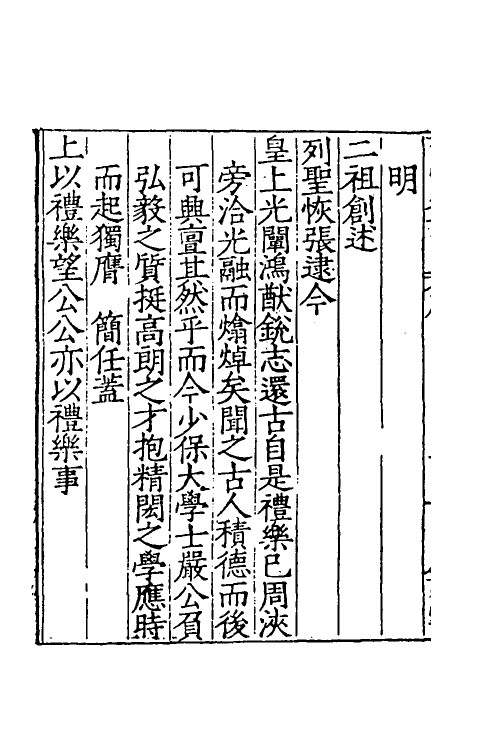 明
二祖創述
列聖恢張逮今
皇上光闡鴻猷銳志還古自是禮樂已周浹
旁洽光融而熻焯矣聞之古人積德而後
可興亶其然乎而今少保大學士嚴公負
弘毅之質挺高朗之才抱精閎之學應時
而起獨膺 簡任蓋
上以禮樂望公公亦以禮樂事